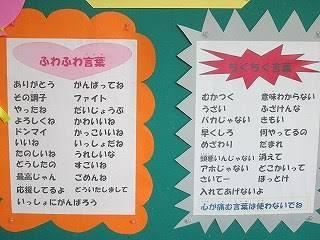 ふわふわ言葉
ありがとう がんばってね
その調子 ファイト
やったね だいじょうぶ
よろしくね かわいいね
ドンマイ かっこいいね
いいね いっしょだね
たのしいね うれしいな
どうしたの すごいね
最高じゃん ごめんね
応援してるよ どういたしまして
いっしょにがんばろう
ちくちく言葉
むかつく 意味わからない
うざい ふざけんな
バカじゃない きもい
早くしろ 何やってるの
めざわり だまれ
頭悪いんじゃない 消えて
アホじゃない どこかいって
さいてー ほっとけ
入れてあげないよ
心が痛む言葉は使わないでね